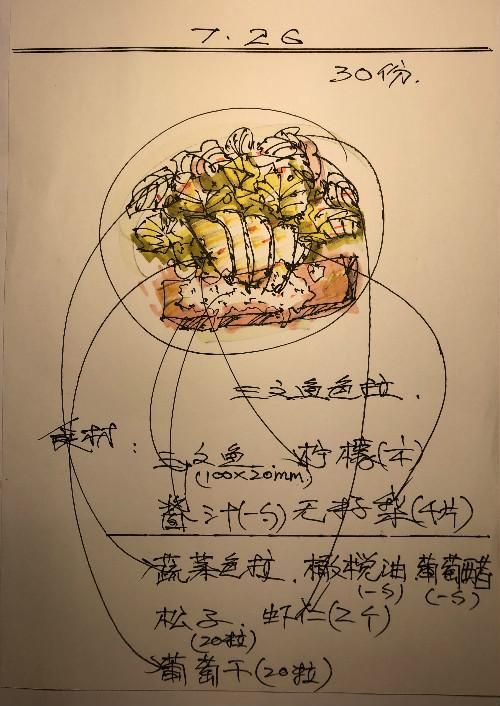 7.26
30份.
三文鱼色拉.
食材:
三文鱼 柠檬(本)
(100×20mm)
酱汁(一勺) 无籽梨(4片)
蔬菜色拉. 橄榄油 葡萄醋
(一勺) (一勺)
松子. 虾仁(2个)
(20粒)
葡萄干(20粒)